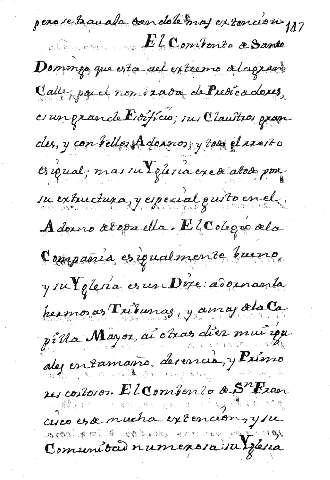 pero se travaxa dandole mas extencion 187
El Combento de Santo
Domingo que esta al extremo de la gran
Calle, por el nombrada de Predicadores,
es un grande Edificio; sus Claustros gran
des, y con bellos Adornos; y todo el resto
es igual; mas su Yglesia excede a todo por
su extructura, y especial gusto en el
Adorno de toda ella. El Colegio de la
Compañia es igualmente bueno,
y su Yglesia es un Dixe: adornanla
hermosas Tribunas, y a mas de la Ca
pilla Mayor, ai otras diez mui igu
ales en tamaño, desencia, y Primo
res costosos. El Combento de Sn. Fran
cisco es de mucha extencion, y su
Comunidad numerosa: su Yglesia